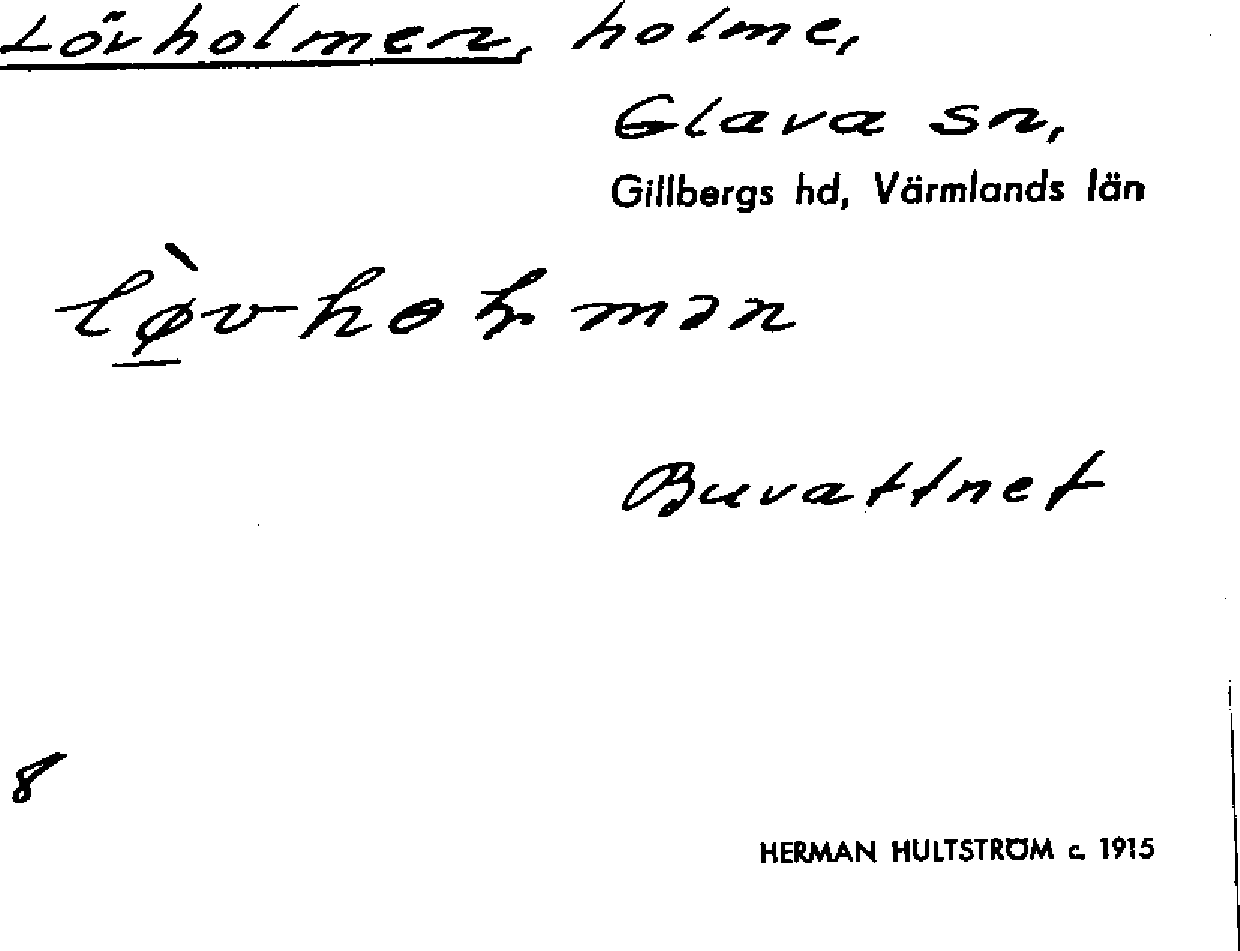 Lövholmen, holme,
Glava sn,
Gillbergs hd, Värmlands län
Buvattnet
8
HERMAN HULTSTRÖM c. 1915